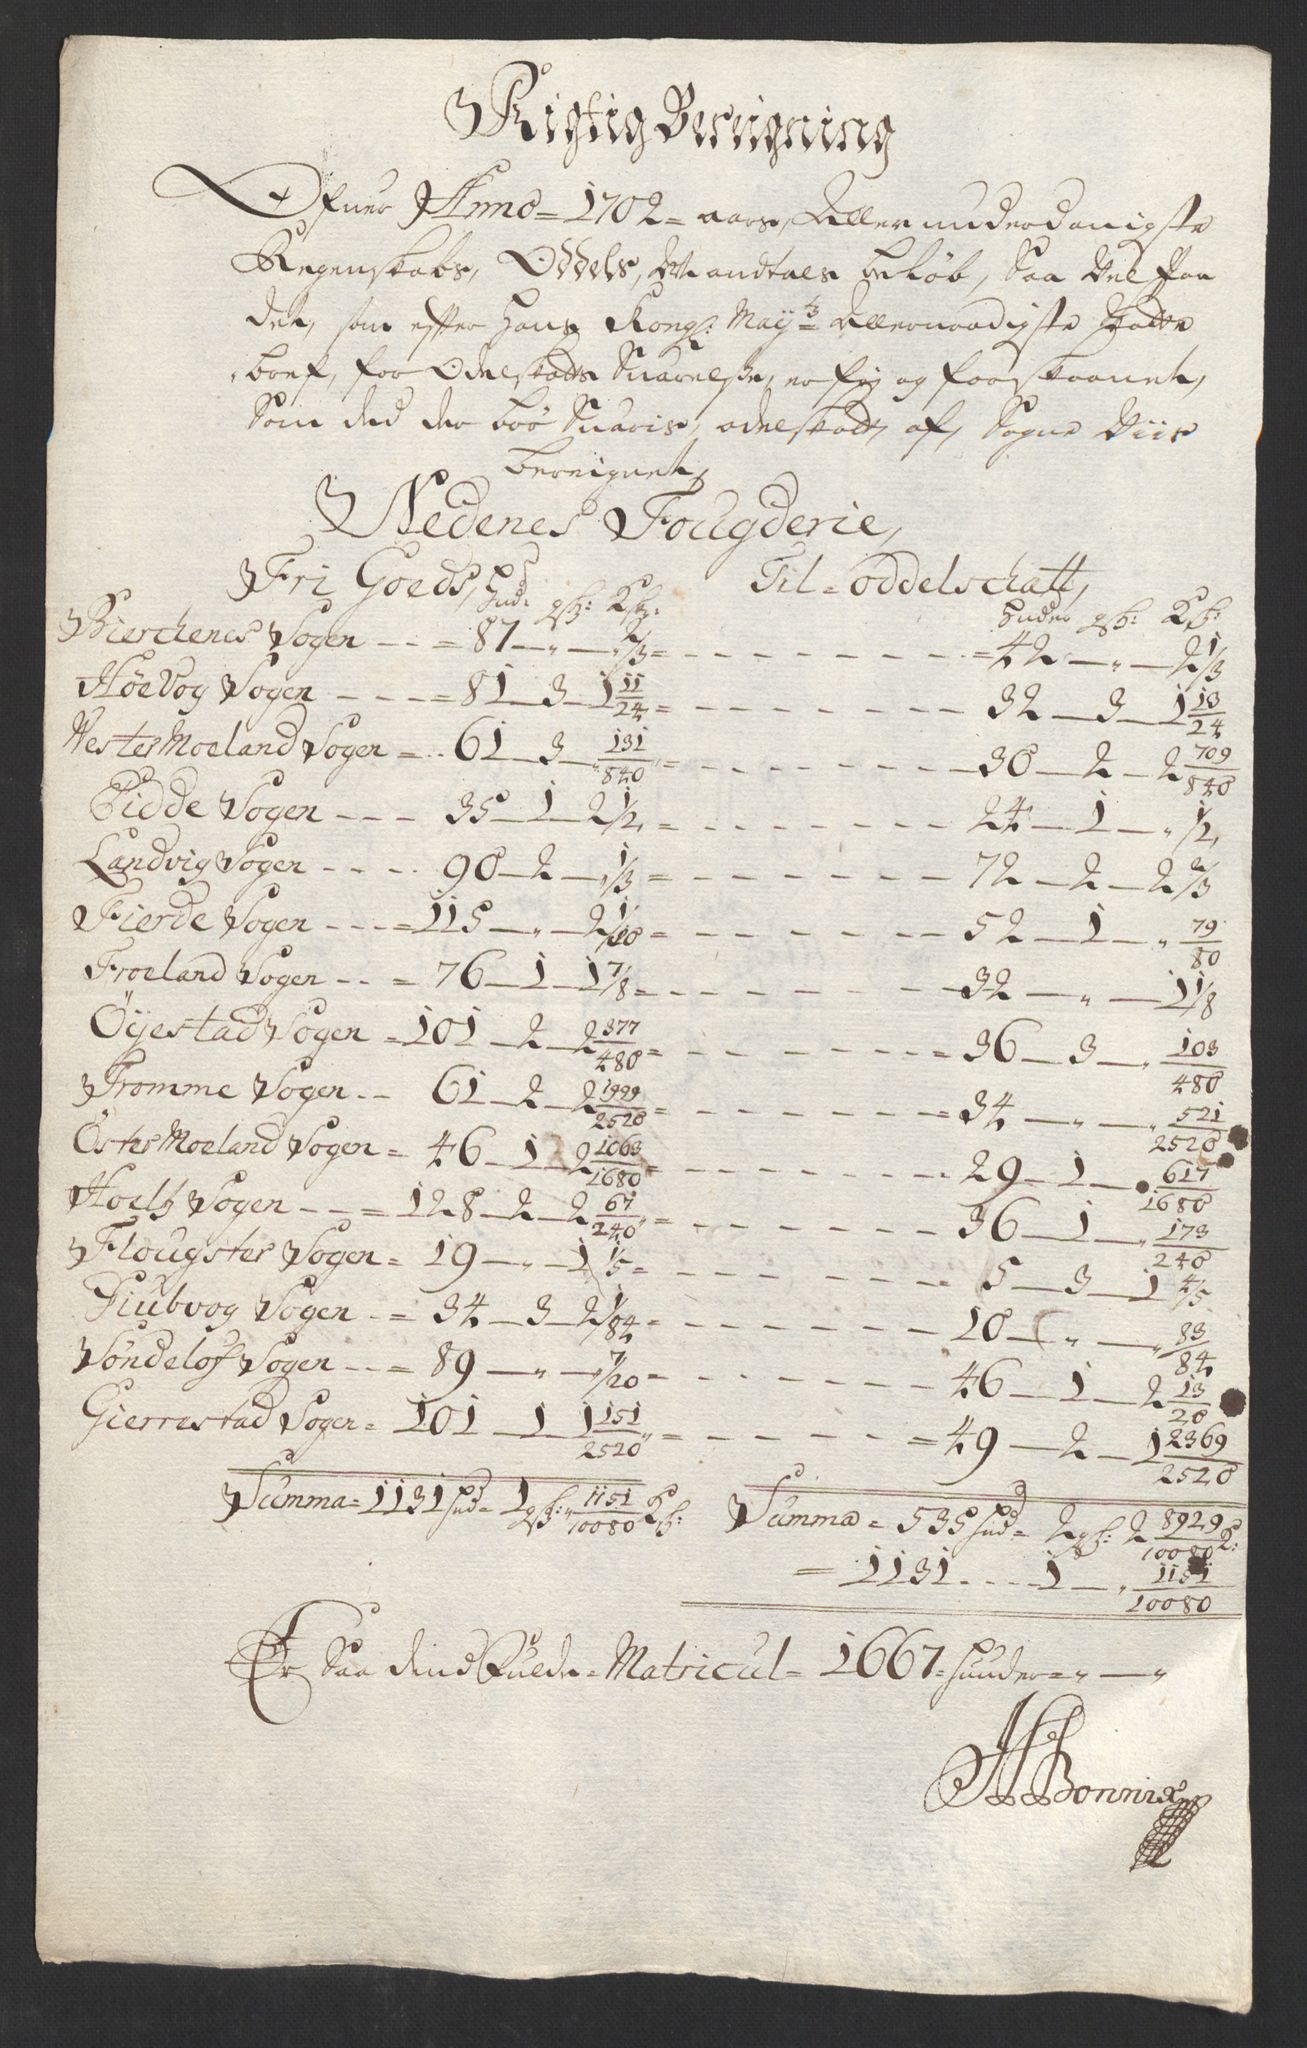 Rigtig Bereigning
Ofuer Anno = 1702 = aars, Aller underdanigste
Regenskabs, Oddels, Mandtals beløb, Saa Vel paa
det, som effter Hans Kongl: May:ts Allernaadigste
bref, for Odelskatts Suarelse, er frj og forskaanet,
Som ded der bør Suaris, odelskatt, af, Sogne Viis
bereignet,
Nedenes Fougderie,
Fri Goeds, Til = oddelschatt,
Hud: gsk: Ksk: Huder gsk: Ksk:
Bierchenes Sogen - - = 87 — „ — „ 2/3 = - - - = 42 — „ — 2 1/3
Höevog Sogen - - - = 81 — 3 — 1 11/24 = - - - 32 — 3 — 1 13/24
Vester Moeland Sogen = 61 — 3 — „ 131/840 = - - - 30 — 2 — 2 709/840
Eidde Sogen - - - 35 — 1 — 2 1/2 = - - - 24 — 1 — „ 1/2
Landvig Sogen - - - 90 — 2 — „ 1/3 = - - - 72 — 2 — 2 2/3
Fierde Sogen - - - = 115 — „ — 2 1/10 = - - - 52 — 1 — „ 79/80
Froeland Sogen - - = 76 — 1 — 1 7/8 = - - - 32 — „ — 1 1/8
Öyestad Sogen = 101 — 2 — 2 377/480 = - - - = 36 — 3 — „ 103/480
Tromme Sogen - - 61 — 2 — 2 1999/2520 = - - - = 34 — „ — „ 521/2520
Öster Moeland Sogen = 46 — 1 — 2 1063/1680 = - - - 29 — 1 — 617/1680
Hoelt Sogen - - - = 128 — 2 — 2 67/240 = - - - 36 — 1 — „ 173/240
Flougster Sogen = 19 — „ — 1 1/5 = - - - 5 — 3 — 1 4/5
Diubvog Sogen - = 34 — 3 — 2 1/84 = - - - 10 — „ — „ 83/84
Söndelöf Sogen - - = 89 — „ — „ 7/20 = - - - 46 — 1 — 2 13/20
Gierrestad Sogen = 101 — 1 — 1 151/2520 = - - - = 49 — 2 — 1 2369/2520
Summa = 1131 hud = 1 gsk: „ 1151/10080 Ksk: Summa = 535 hud = 2 gsk: 2 8929/10080 K:
= 1131 - - - 1 — „ 1151/10080
Er Saa dend fulde = Matricul = 1667 = huder = „ — „